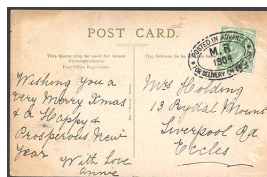 POST CARD.
This Space may be used for Inland
Correspondence.
Post Office Regulation.
The Address to be
POSTED IN ADVANCE
M.R
1904
FOR DELIVERY ON
Wishing you a
Very Merry Xmas
& a Happy &
Prosperous New
Year
With love
Annie
Mrs Holding
13 Rydal Mount
Liverpool Rd
Eccles